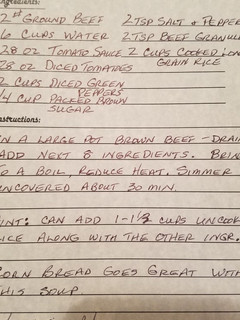 ngredients:
2# Ground Beef 2 tsp Salt & Pepper
6 cups Water 2 tsp Beef Granul
28 oz Tomato Sauce 2 cups Cooked Lon
28 oz Diced Tomatoes Grain Rice
2 cups Diced Green Peppers
1/4 cup Packed Brown Sugar
nstructions:
In a large pot Brown Beef - Drain
Add next 8 ingredients. Brin
To a boil, reduce heat. Simmer
uncovered about 30 min.
int: can add 1-1 1/2 cups uncook
ice along with the other ingr.
orn Bread Goes Great with
this soup.